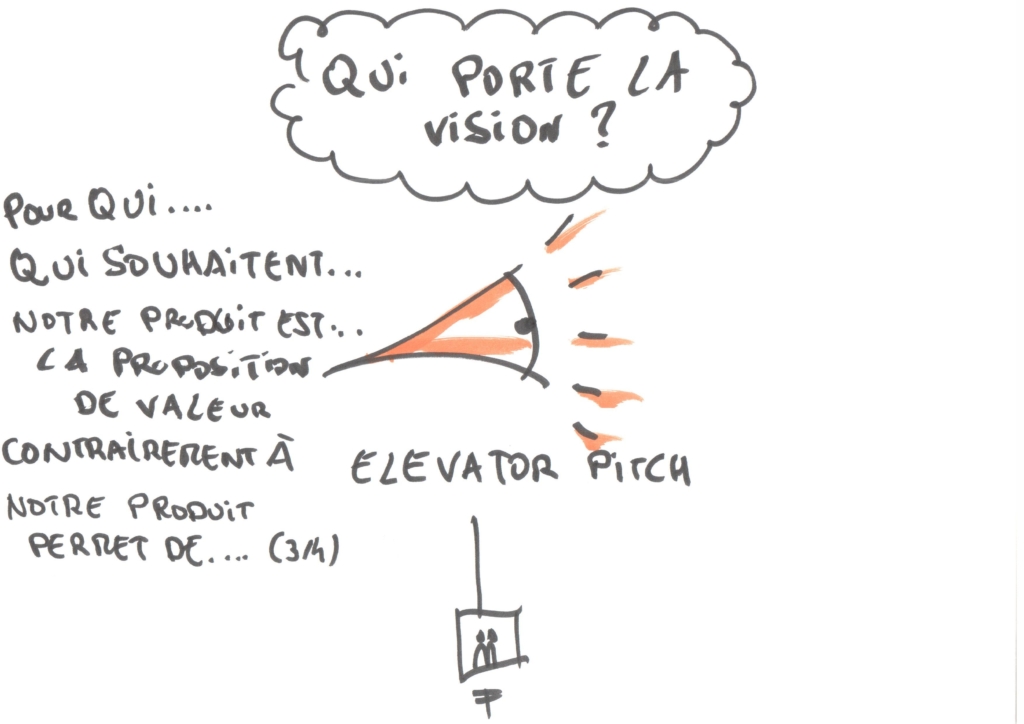 QUi PORTE LA
ViSiON ?
POUR QUi....
QUi SOUHAiTENT...
NOTRE PRODUiT EST...
LA PROPOSiTiON
DE VALEUR
CONTRAiREMENT À
NOTRE PRODUiT
PERMET DE.... (3/4)
ELEVATOR PiTCH